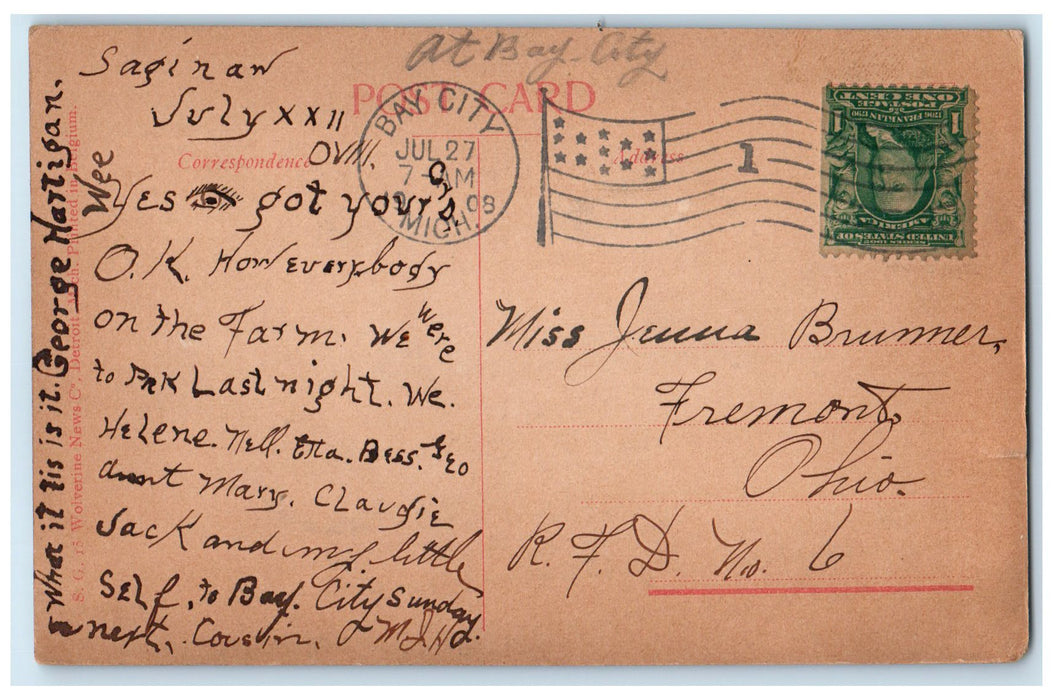 At Bay City
POST CARD
Saginaw
July XXII
OVIII.
Correspondence
Address
BAY CITY
JUL 27
7- AM
1908
MICH.
1
POSTAGE
ONE CENT
1706 FRANKLIN 1790
SERIES 1902
UNITED STATES OF
AMERICA
Wee
Yes got yours
O.K. How everybody
on the Farm. We were
to Park Last night. We.
Helene. Nell. Etta. Bess. Geo
aunt Mary. Claudie
Jack and my little
Self, to Bay. City Sunday.
next. Cousin. M J H
what it tis is it. George Hartigan.
S. G. 15 Wolverine News Co, Detroit, Mich. Printed in Belgium.
Miss Jenna Brunner,
Fremont
Ohio.
R. F. D. No. 6